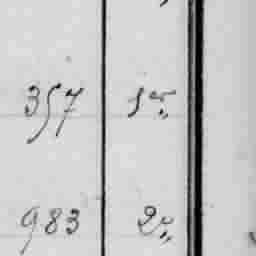 357 1 „
983 2 „